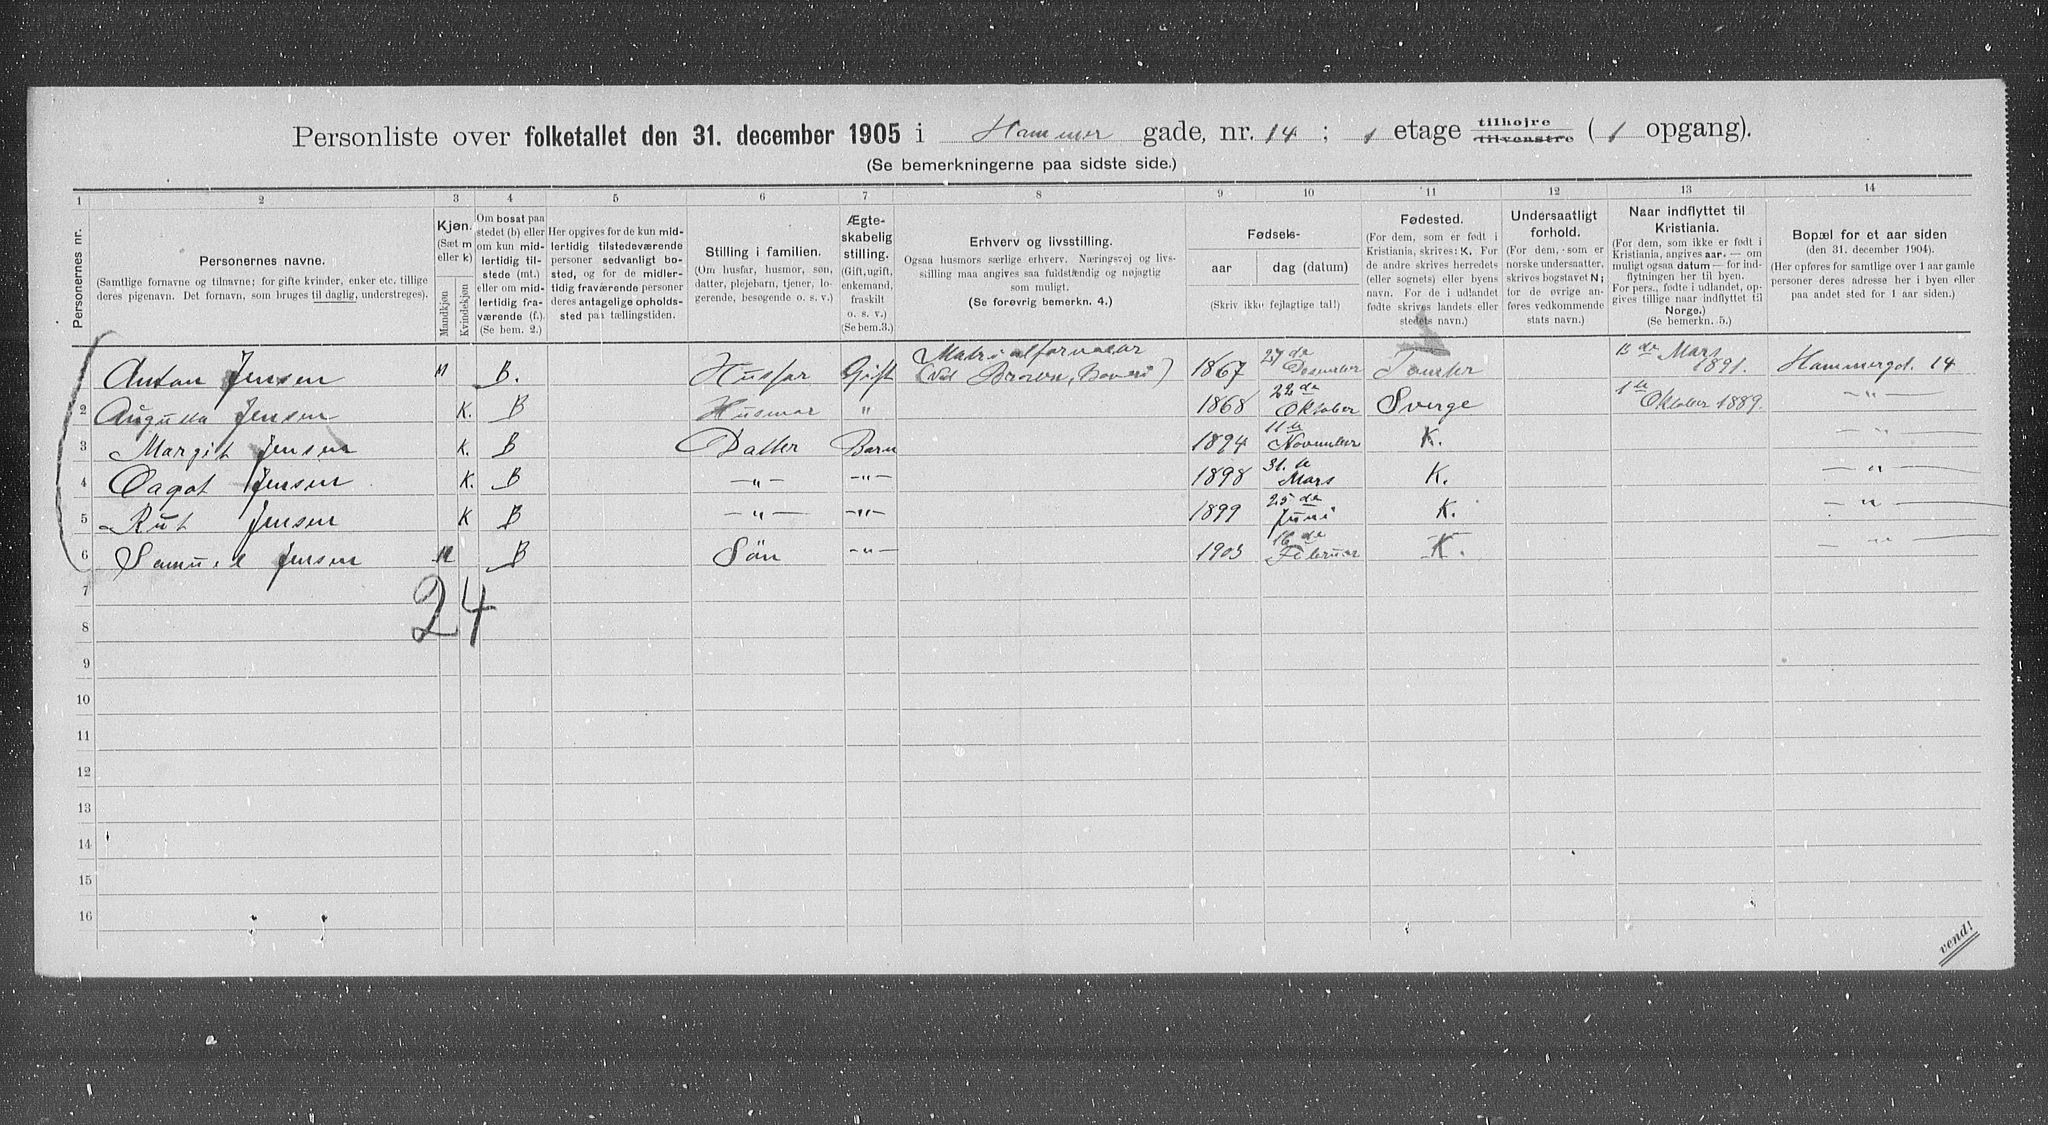 Personliste over folketallet den 31. december 1905 i Hammer gade, nr. 14 ; 1 etage tilhøjre tilvenstre ( 1 opgang).
(Se bemerkningerne paa sidste side.)
1 2 3 4 5 6 7 8 9 10 11 12 13 14
Personernes nr.
Personernes navne.
(Samtlige fornavne og tilnavne; for gifte kvinder, enker etc. tillige
deres pigenavn. Det fornavn, som bruges til daglig, understreges).
Kjøn.
(Sæt m
eller k)
Mandkjøn
Kvindekjøn
Om bosat paa
stedet (b) eller
om kun mid-
lertidig til-
stede (mt.)
eller om mid-
lertidig fra-
værende (f.).
(Se bem. 2.)
Her opgives for de kun mid-
lertidig tilstedeværende
personer sedvanligt bo-
sted, og for de midler-
tidig fraværende personer
deres antagelige opholds-
sted paa tællingstiden.
Stilling i familien.
(Om husfar, husmor, søn,
datter, plejebarn, tjener, lo-
gerende, besøgende o. s. v.)
Ægte-
skabelig
stilling.
(Gift, ugift,
enkemand,
fraskilt
o. s. v.)
(Se bem.3.)
Erhverv og livsstilling.
Ogsaa husmors særlige erhverv. Næringsvej og livs-
stilling maa angives saa fuldstændig og nøjagtig
som muligt.
(Se forøvrig bemerkn. 4.)
Fødsels-
aar
dag (datum)
(Skriv ikke fejlagtige tal!)
Fødested.
(For dem, som er født i
Kristiania, skrives: K. For
de andre skrives herredets
(eller sognets) eller byens
navn. For de i udlandet
fødte skrives landets eller
stedets navn.)
Undersaatligt
forhold.
(For dem, som er
norske undersaatter,
skrives bogstavet N;
for de øvrige an-
føres vedkommende
stats navn.)
Naar indflyttet til
Kristiania.
(For dem, som ikke er født i
Kristiania, angives aar. — om
muligt ogsaa datum — for ind-
flytningen her til byen.
For pers., fødte i udlandet, op-
gives tillige naar indflyttet til
Norge.)
(Se bemerkn. 5.)
Bopæl for et aar siden
(den 31. december 1904).
(Her opføres for samtlige over 1 aar gamle
personer deres adresse her i byen eller
paa andet sted for 1 aar siden.)
Anton Jensen M B. Husfar Gift Matrialforvalter (ved Brown, Boveri) 1867 27de Desember 1891. Hammergd. 14
2 Augusta Jensen K. B Husmor " 1868 22de Oktober Sverge 1te Oktober 1889. — " —
3 Margit Jensen K. B Datter Barn 1894 11te November K. — " —
4 Dagot Jensen K. B — " — — " — 1898 31.te Mars K. — " —
5 Rut Jensen K B — " — — " — 1899 25de Juni K. — " —
6 Samuel Jensen M B Søn — " — 1903 16de Februar K. — " —
24
7
8
9
10
11
12
13
14
15
16
vend!